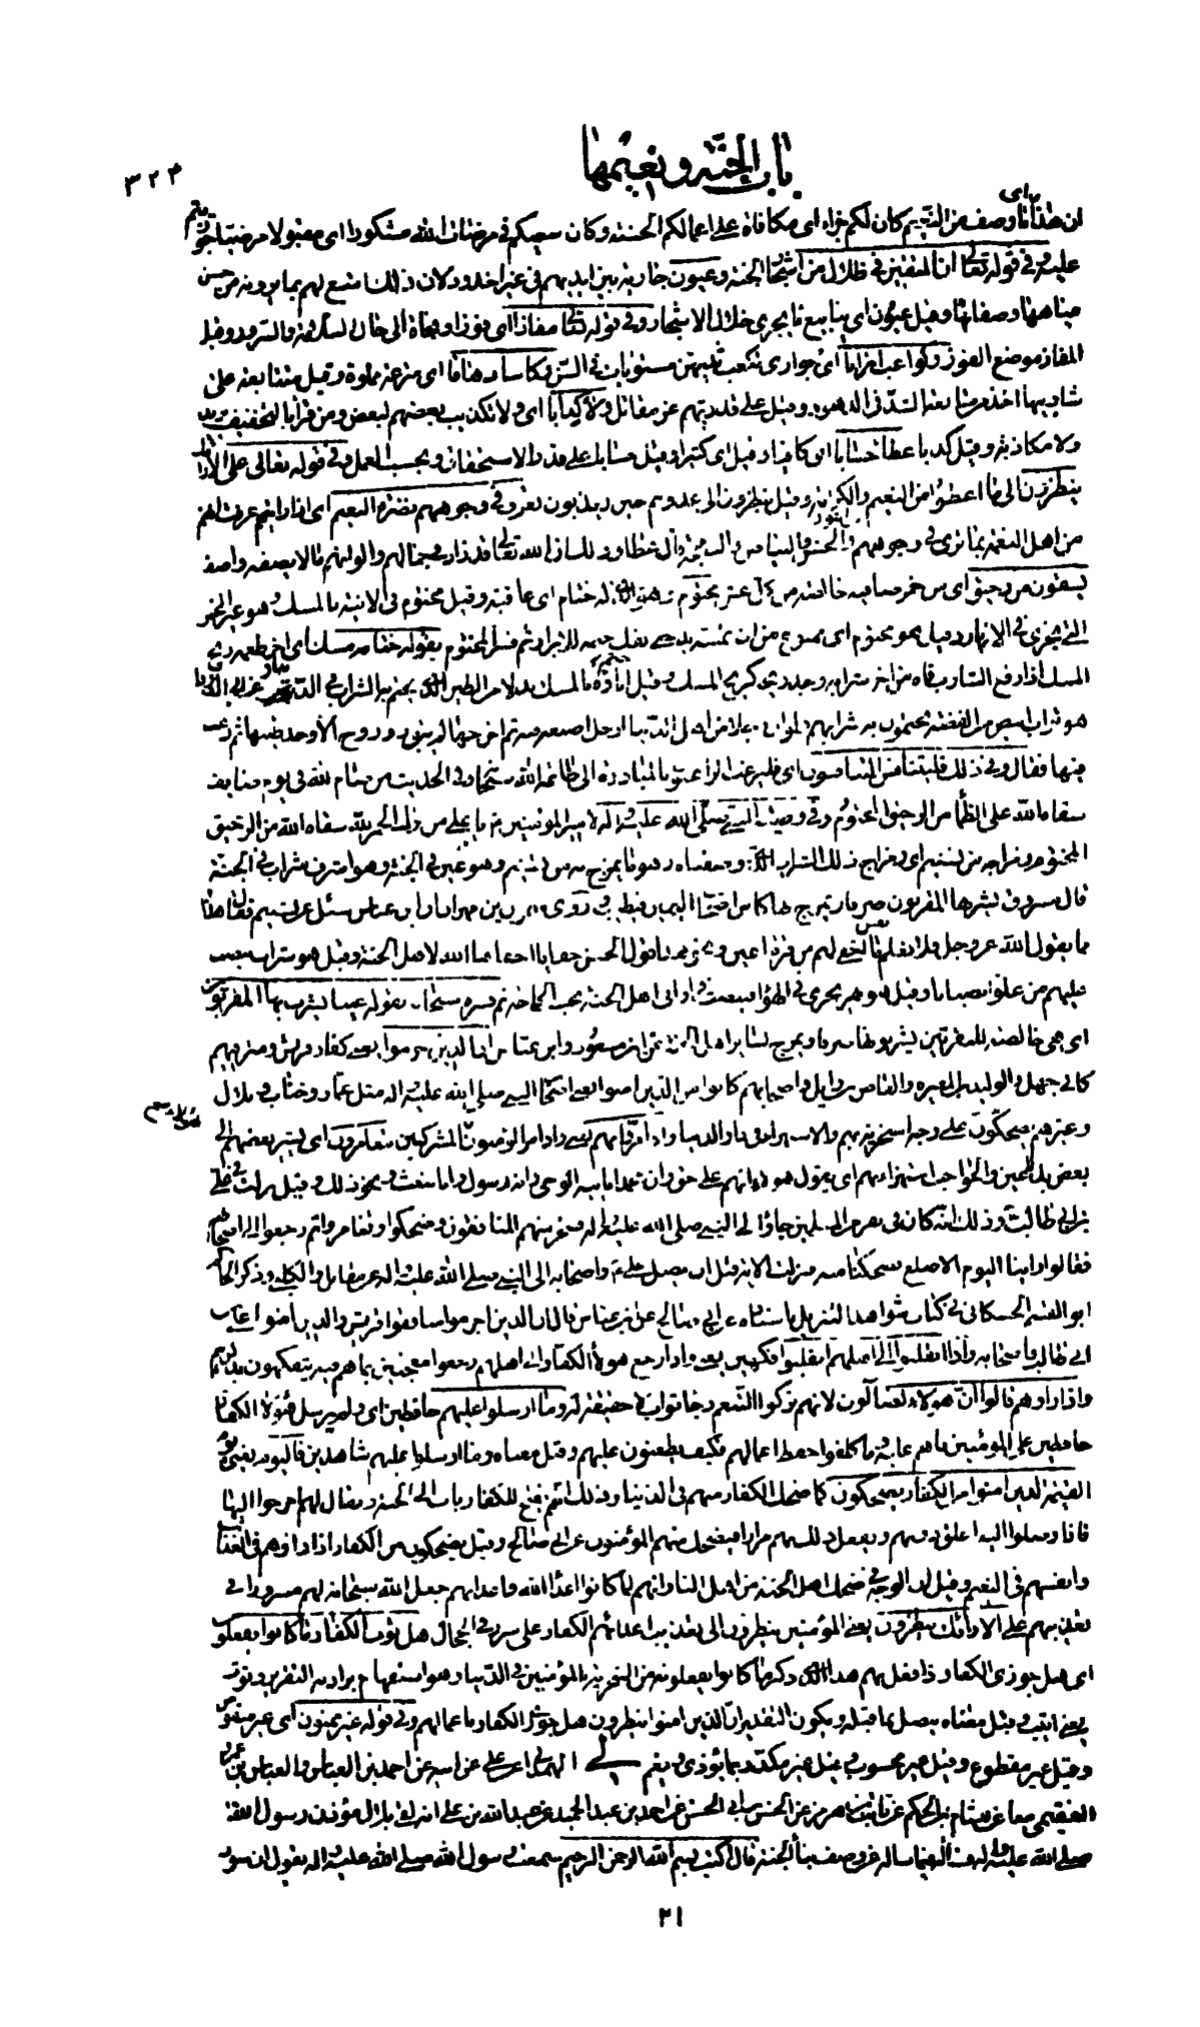 باب الجنة ونعيمها
٣٢٣
ان هذا اي ما وصف من النعيم كان لكم جزاء اي مكافاة على اعمالكم الحسنة وكان سعيكم في مرضات الله مشكورا اي مقبولا مرضيا جوزيتم
عليه وفي قوله تعالى ان المتقين في ظلال من اشجار الجنة وعيون جارية بين ايديهم في غير اخدود لان ذلك امتع لهم بما يرونه من حسن
مياهها وصفائها وقيل عيون اي ينابيع ما يجري خلال الاشجار وفي قوله تعالى مفازا اي فوزا ونجاة الى حال السلامة والسرور وقيل
المفاز موضع الفوز وكواعب اترابا اي جواري تكعب ثديهن مستويات في السن وكاسا دهاقا اي مترعة مملوة وقيل متتابعة على
شاربيها اخذ من متابعة الشد في الدهق وقيل على قدر ريهم عن مقاتل ولا كذابا اي ولا تكذيب بعضهم لبعض ومن قرأ بالتخفيف يريد
ولا مكاذبة وقيل كذبا عطاء حسابا اي كافيا وقيل اي كثيرا وقيل حسابا على قدر الاستحقاق وبحسب العمل وفي قوله تعالى على الارائك
ينظرون الى ما اعطوا من النعيم والكرامة وقيل ينظرون الى عدوهم حين يعذبون تعرف في وجوههم نضرة النعيم اي اذا رايتهم عرفت انهم
من اهل النعمة بما ترى في وجوههم من النور والحسن والبياض والبهجة قال عطا وذلك ان الله تعالى قد زاد في جمالهم والوانهم ما لا يصفه واصف
يسقون من رحيق اي من خمر صافية خالصة من كل غش مختوم وهو الذي له ختام اي عاقبة وقيل مختوم في الانية بالمسك وهو غير الخمر
التي تجري في الانهار وقيل هو مختوم اي ممنوع من ان تمسه يد حتى يفك ختمه للابرار ثم فسر المختوم بقوله ختامه مسك اي اخر طعمه ريح
المسك اذا رفع الشارب فاه من اخر شرابه وجد ريحه كريح المسك وقيل
هو شراب ابيض مثل الفضة يختمون به شرابهم ولو ان رجلا من اهل الدنيا ادخل اصبعه فيه ثم اخرجها لم يبق ذو روح الا وجد طيبها ثم رغب
فيها فقال وفي ذلك فليتنافس المتنافسون اي فليرغب الراغبون بالمبادرة الى طاعة الله سبحانه وفي الحديث من صام لله في يوم صايف
سقاه الله على الظمأ من الرحيق المختوم وفي وصية النبي صلى الله عليه واله لامير المؤمنين يا علي من ترك الخمر لله سقاه الله من الرحيق
المختوم ومزاجه من تسنيم اي ومزاج ذلك الشراب الذي وصفناه وهو ما يمزج به من تسنيم وهو عين في الجنة وهو اشرف شراب في الجنة
قال مسروق يشربها المقربون صرفا ويمزج بها كاس اصحاب اليمين فيطيب وروى ميمون بن مهران ان ابن عباس سئل عن تسنيم فقال هذا
مما يقول الله عز وجل فلا تعلم نفس ما اخفي لهم من قرة اعين ونحو هذا قول الحسن خفايا اخفاها الله لاهل الجنة وقيل هو شراب ينصب
عليهم من علو انصبابا وقيل هو نهر يجري في الهوا فينصب في اواني اهل الجنة بحسب الحاجة ثم فسره سبحانه بقوله عينا يشرب بها المقربون
اي هي خالصة للمقربين يشربونها صرفا ويمزج لسائر اهل الجنة عن ابن مسعود وابن عباس ان الذين اجرموا يعني كفار قريش ومترفيهم
كابي جهل والوليد بن المغيرة والعاص بن وايل واصحابهم كانوا من الذين امنوا يعني اصحاب النبي صلى الله عليه واله مثل عمار وخباب وبلال
وغيرهم يضحكون على وجه السخرية بهم والاستهزاء في دار الدنيا واذا مروا بهم يعني واذا مر المؤمنون بالمشركين يتغامزون اي يشير بعضهم الى
بعض بالاعين والحواجب استهزاء بهم اي يقول هؤلاء انهم على حق وان محمدا ياتيه الوحي وانه رسول وانا نبعث ونحو ذلك وقيل نزلت في علي
بن ابي طالب وذلك انه كان في نفر من المسلمين جاؤا الى النبي صلى الله عليه واله فسخر منهم المنافقون وضحكوا وتغامزوا ثم رجعوا الى اصحابهم
فقالوا راينا اليوم الاصلع فضحكنا منه فنزلت الاية قبل ان يصل علي واصحابه الى النبي صلى الله عليه واله عن مقاتل والكلبي وذكر الحاكم
ابو القسم الحسكاني في كتاب شواهد التنزيل باسناده عن ابي صالح عن ابن عباس قال ان الذين اجرموا منافقوا قريش والذين امنوا علي بن
ابي طالب واصحابه واذا انقلبوا الى اهلهم انقلبوا فكهين يعني واذا رجع هؤلاء الكفار الى اهلهم رجعوا معجبين بما هم فيه يتفكهون بذكرهم
واذا راوهم قالوا ان هؤلاء لضالون لانهم تركوا التنعم رجاء ثواب لا حقيقة له وما ارسلوا عليهم حافظين اي ولم يرسل هؤلاء الكفار
حافظين على المؤمنين ما هم عليه وما كلفوا حفظ اعمالهم فكيف يطعنون عليهم وقيل معناه وما ارسلوا عليهم شاهدين فاليوم يعني يوم
القيمة الذين امنوا من الكفار يضحكون كما ضحك الكفار منهم في الدنيا وذلك انه يفتح للكفار باب الى الجنة ويقال لهم اخرجوا اليها
فاذا وصلوا اليه اغلق دونهم ويفعل ذلك بهم مرارا فيضحك منهم المؤمنون عن ابي صالح وقيل يضحكون من الكفار اذا راوهم في العذاب
وانفسهم في النعيم وقيل ان الوجه في ضحك اهل الجنة من اهل النار انهم لما كانوا اعداء الله واعداءهم جعل الله سبحانه لهم سرورا في
تعذيبهم على الارائك ينظرون يعني المؤمنين ينظرون الى تعذيب اعدائهم الكفار على سرر في الحجال هل ثوب الكفار ما كانوا يفعلون
اي هل جوزي الكفار اذا فعل بهم هذا الذي ذكر ما كانوا يفعلونه من السخرية بالمؤمنين في الدنيا وهو استفهام يراد به التقرير وثوب
يعني اثيب وقيل معناه يتصل بما قبله ويكون التقدير ان الذين امنوا ينظرون هل جوزي الكفار باعمالهم وفي قوله غير ممنون اي غير منقوص
وقيل غير مقطوع وقيل غير محسوب وقيل غير مكدر بما يؤذي ويغم لي الهمداني عن علي عن ابيه عن احمد بن العباس والعباس بن عمرو
الفقيمي معا عن هشام بن الحكم عن ثابت بن هرمز عن الحسن بن ابي الحسن عن احمد بن عبد الحميد عن عبد الله بن علي انه لقي بلال مؤذن رسول الله
صلى الله عليه واله فساله عن وصف بناء الجنة قال اكتب بسم الله الرحمن الرحيم سمعت رسول الله صلى الله عليه واله يقول ان سور
٢١